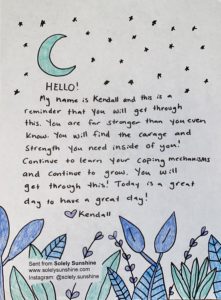 HELLO!
My name is Kendall and this is a
reminder that you will get through
this. You are far stronger than you even
know. You will find the carage and
strength you need inside of you!
Continue to learn your coping mechanisms
and continue to grow. You will
get through this! Today is a great
day to have a great day!
Kendall
Sent from Solely Sunshine
www.solelysunshine.com
Instagram: @solely.sunshine